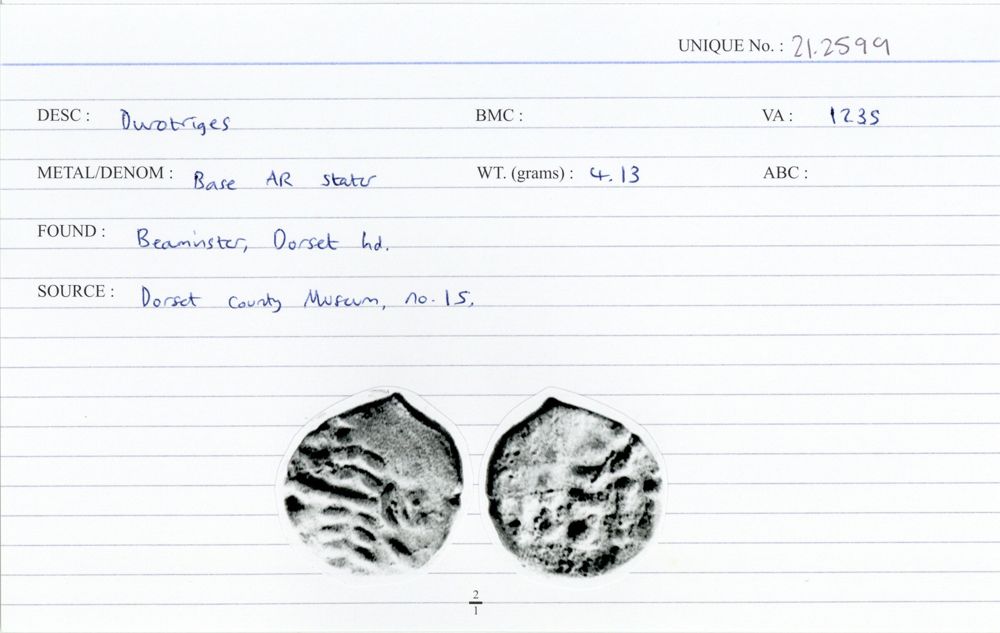 UNIQUE No. : 21.2599
DESC : Durotriges BMC : VA : 1235
METAL/DENOM : Base AR stater WT. (grams) : 4.13 ABC :
FOUND : Beaminster, Dorset hd.
SOURCE : Dorset County Museum, no. 15.
2
1